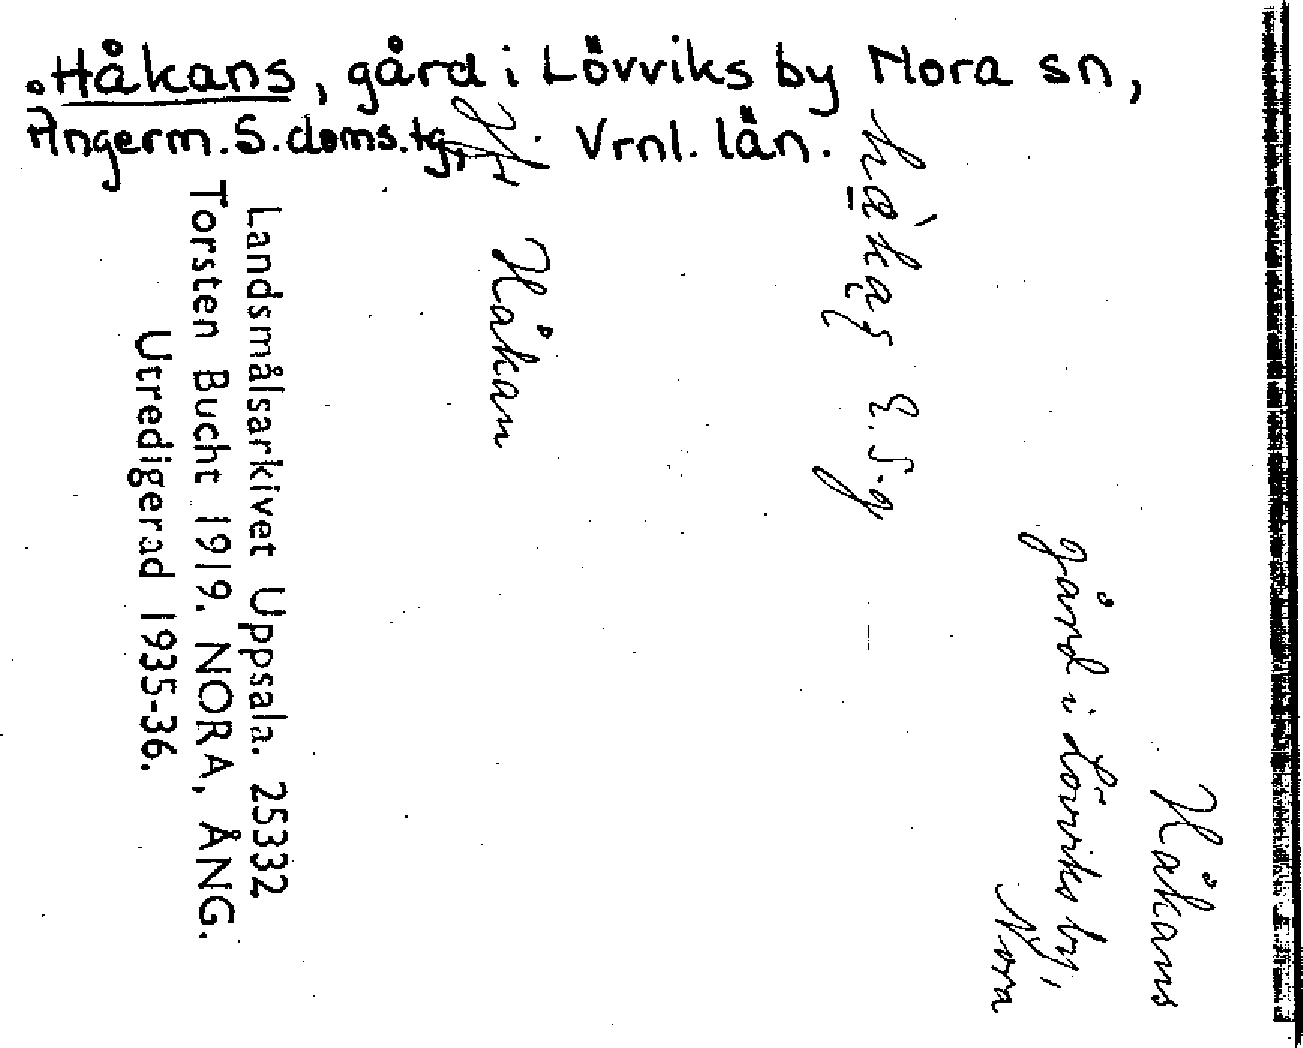 Håkans, gård i Lövviks by Nora sn,
Ångerm. S. doms. tg, Vrnl. län.
Håkans
gård i Lövviks by,
Nora
Håkan
Landsmålsarkivet Uppsala. 25332
Torsten Bucht 1919. NORA, ÅNG.
Utredigerad 1935-36.